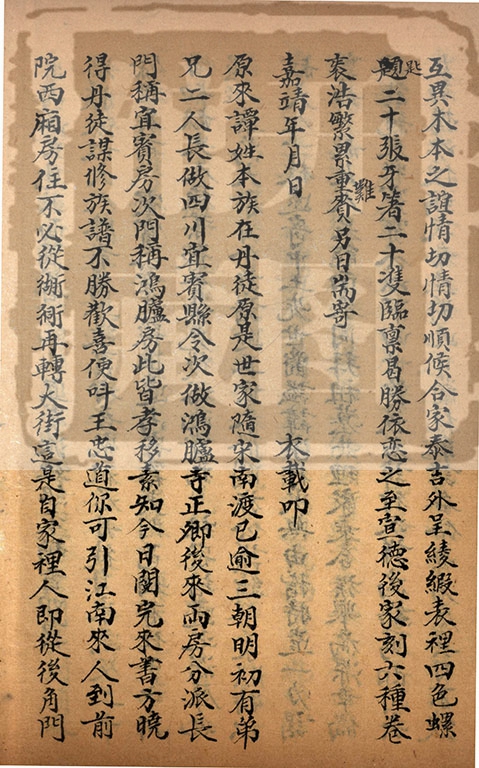 互異木本之誼情切情切順候合家泰吉外呈綾緞表裡四色螺
匙二十張牙箸二十雙臨禀曷勝依恋之至宣德後家刻六種卷
袠浩繁累重難賫另日耑寄
嘉靖年月日　　　　　　　　　　衣載叩
原來譚姓本族在丹徒原是世家隨宋南渡已逾三朝明初有弟
兄二人長做四川宜賓縣令次做鴻臚寺正卿後來兩房分派長
門稱宜賓房次門稱鴻臚房此皆孝移素知今日閱完來書方曉
得丹徒謀修族譜不勝歡喜便呌王忠道你可引江南來人到前
院西廂房住不必從衚衕再轉大街這是自家裡人即從後角門